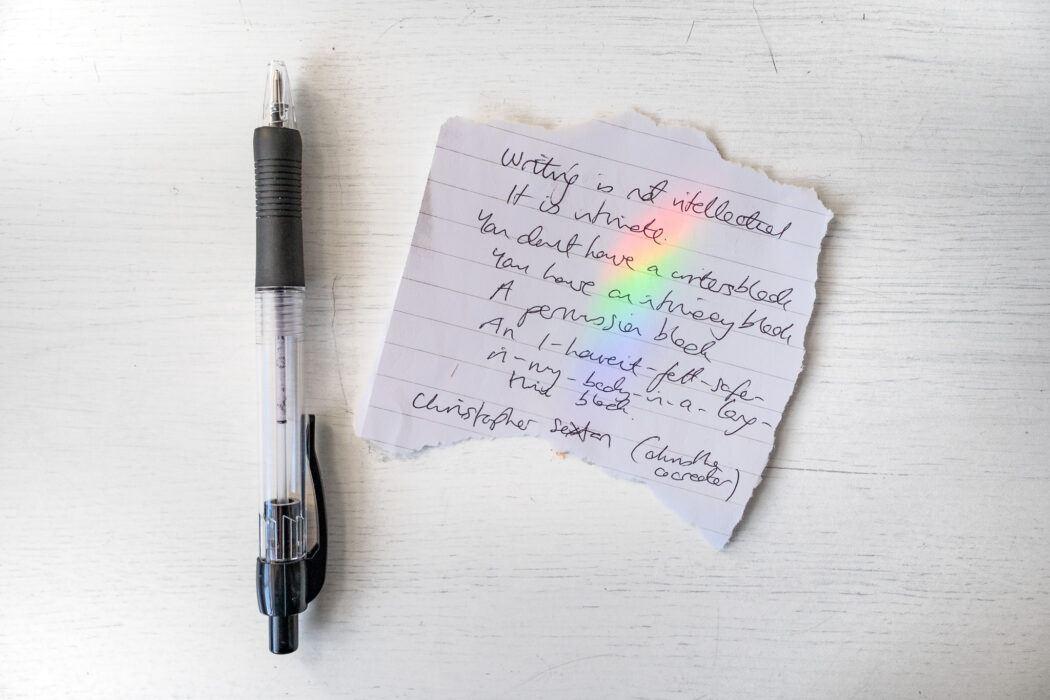 Writing is not intellectual
It is intimate.
You don't have a writers block
You have an intimacy block
A permission block
An I-havent-felt-safe-
in-my-body-in-a-long-
time block.
Christopher Sexton